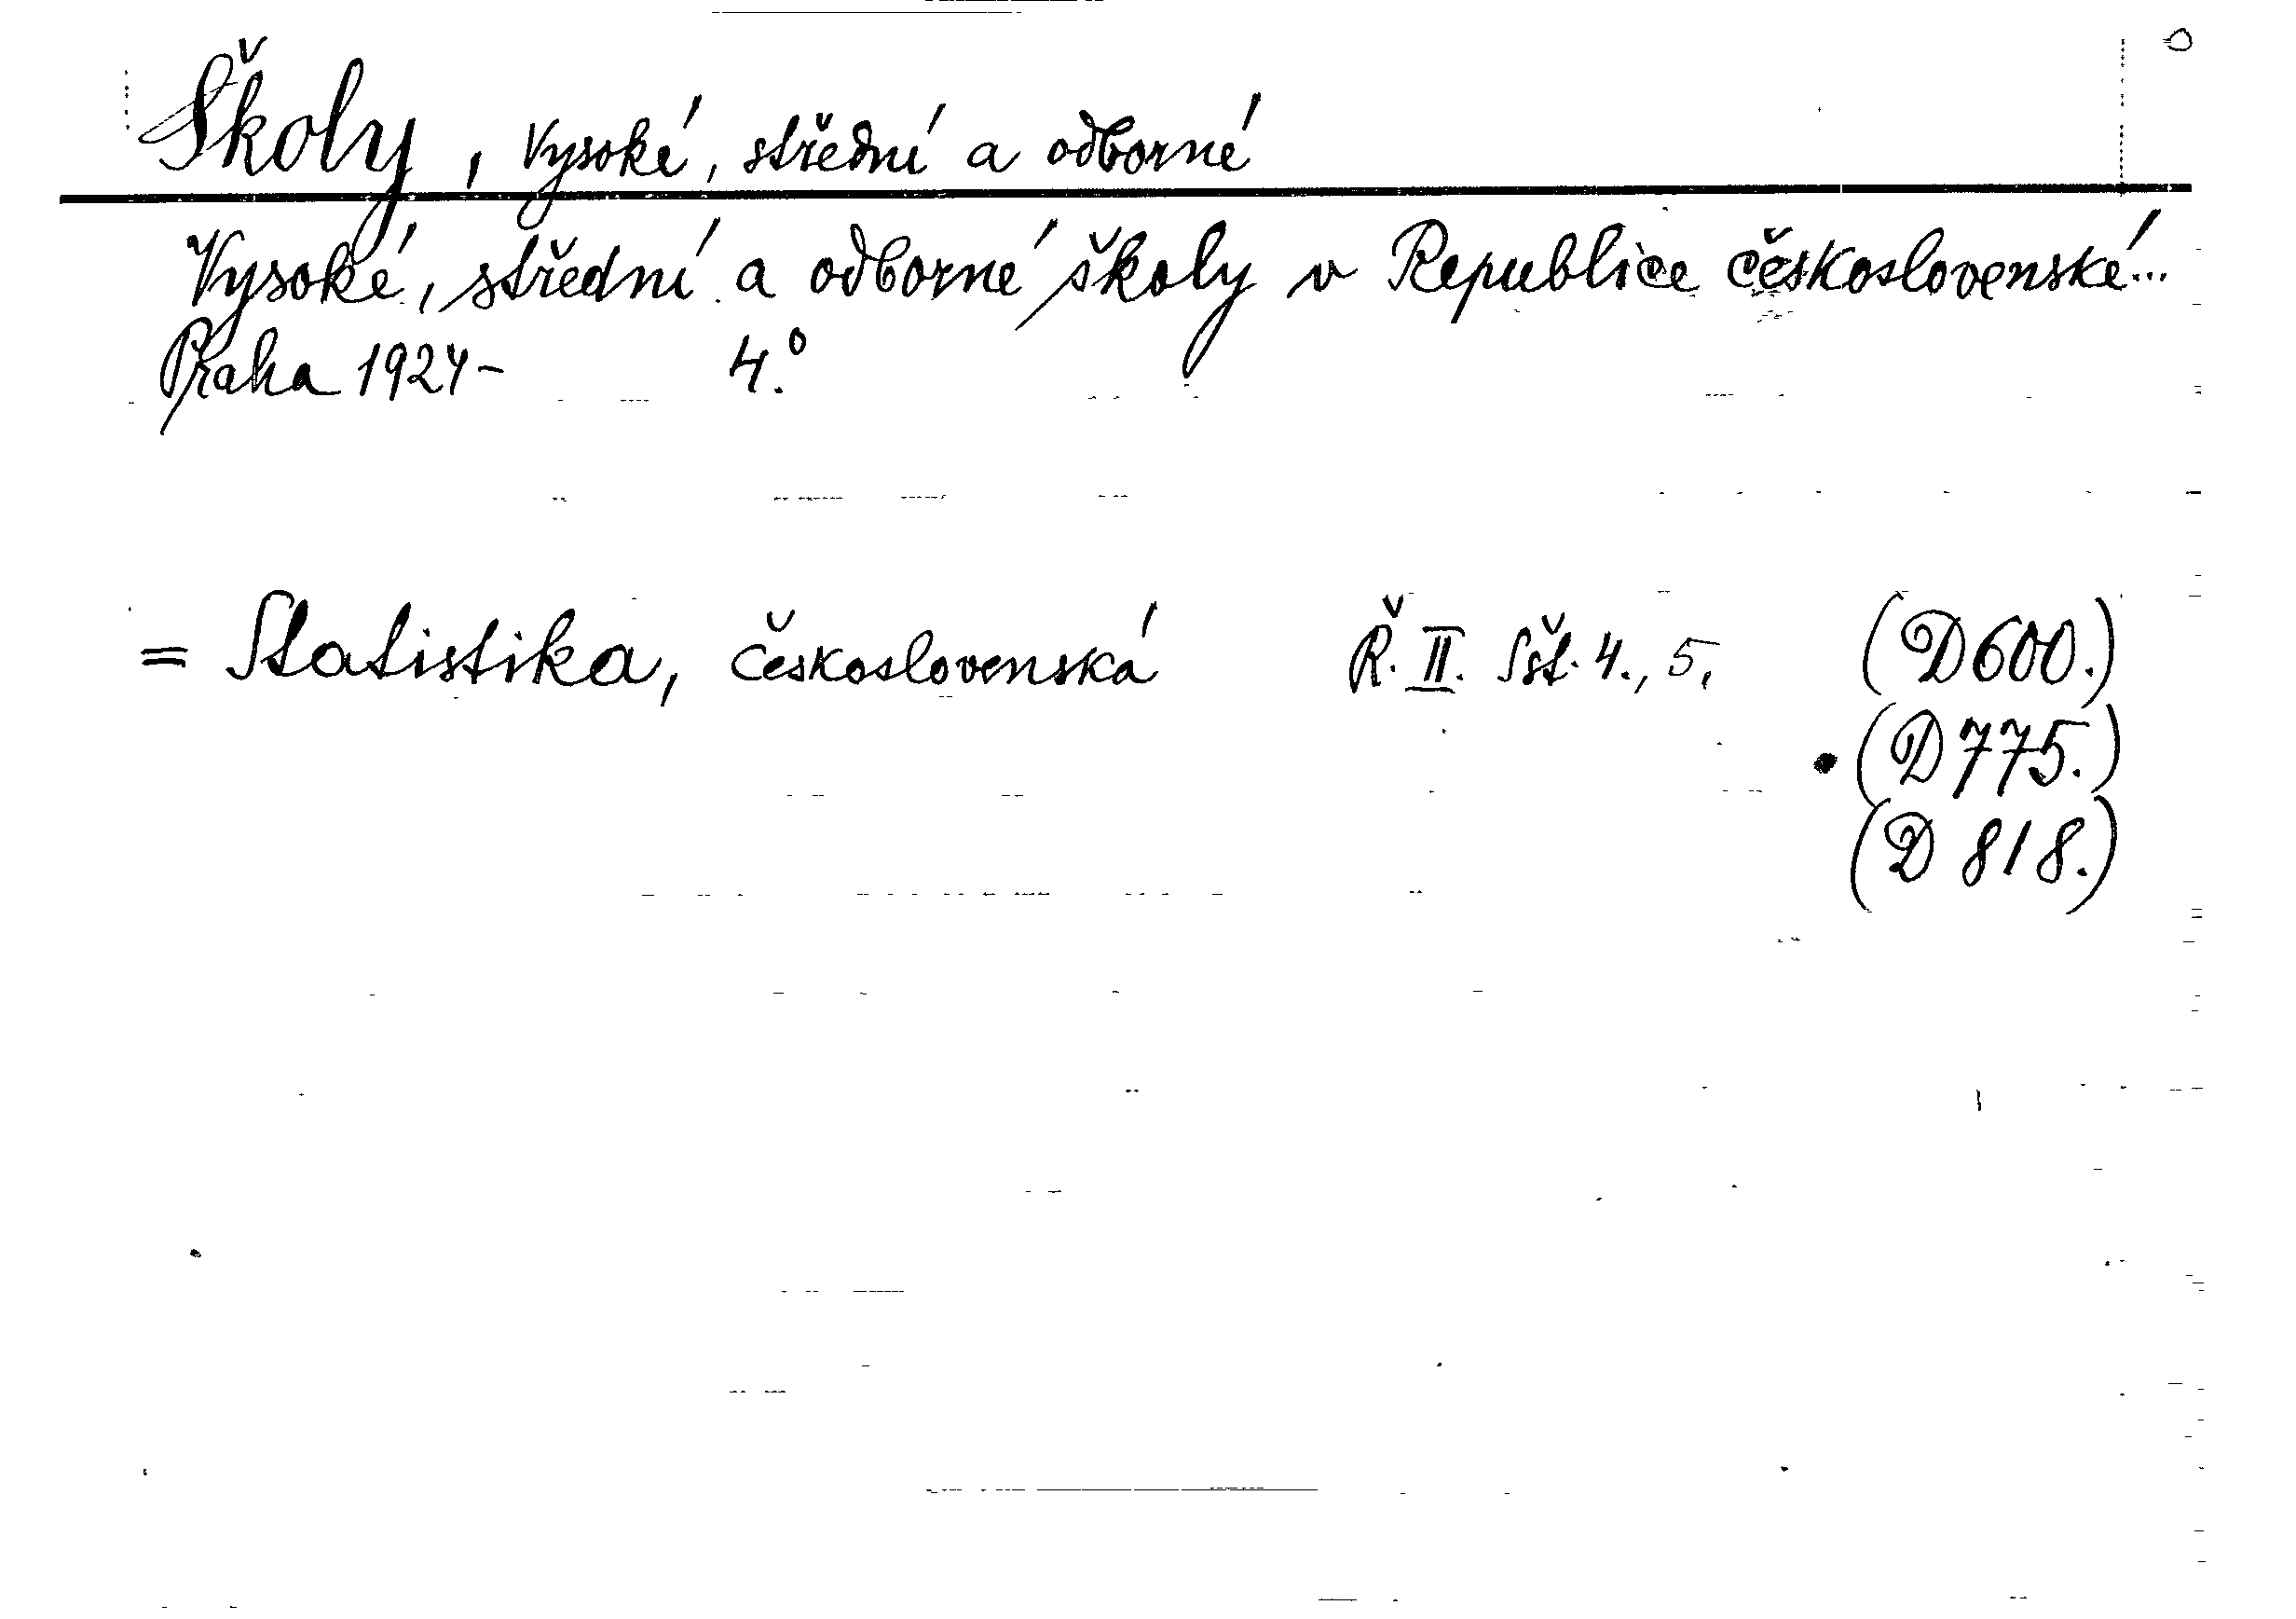 Školy, vysoké, střední a odborné
Vysoké, střední a odborné školy v Republice československé...
Praha 1924- 4.°
= Statistika, československá Ř. II. Sšt. 4., 5. (D 600.)
(D 775.)
(D 818.)